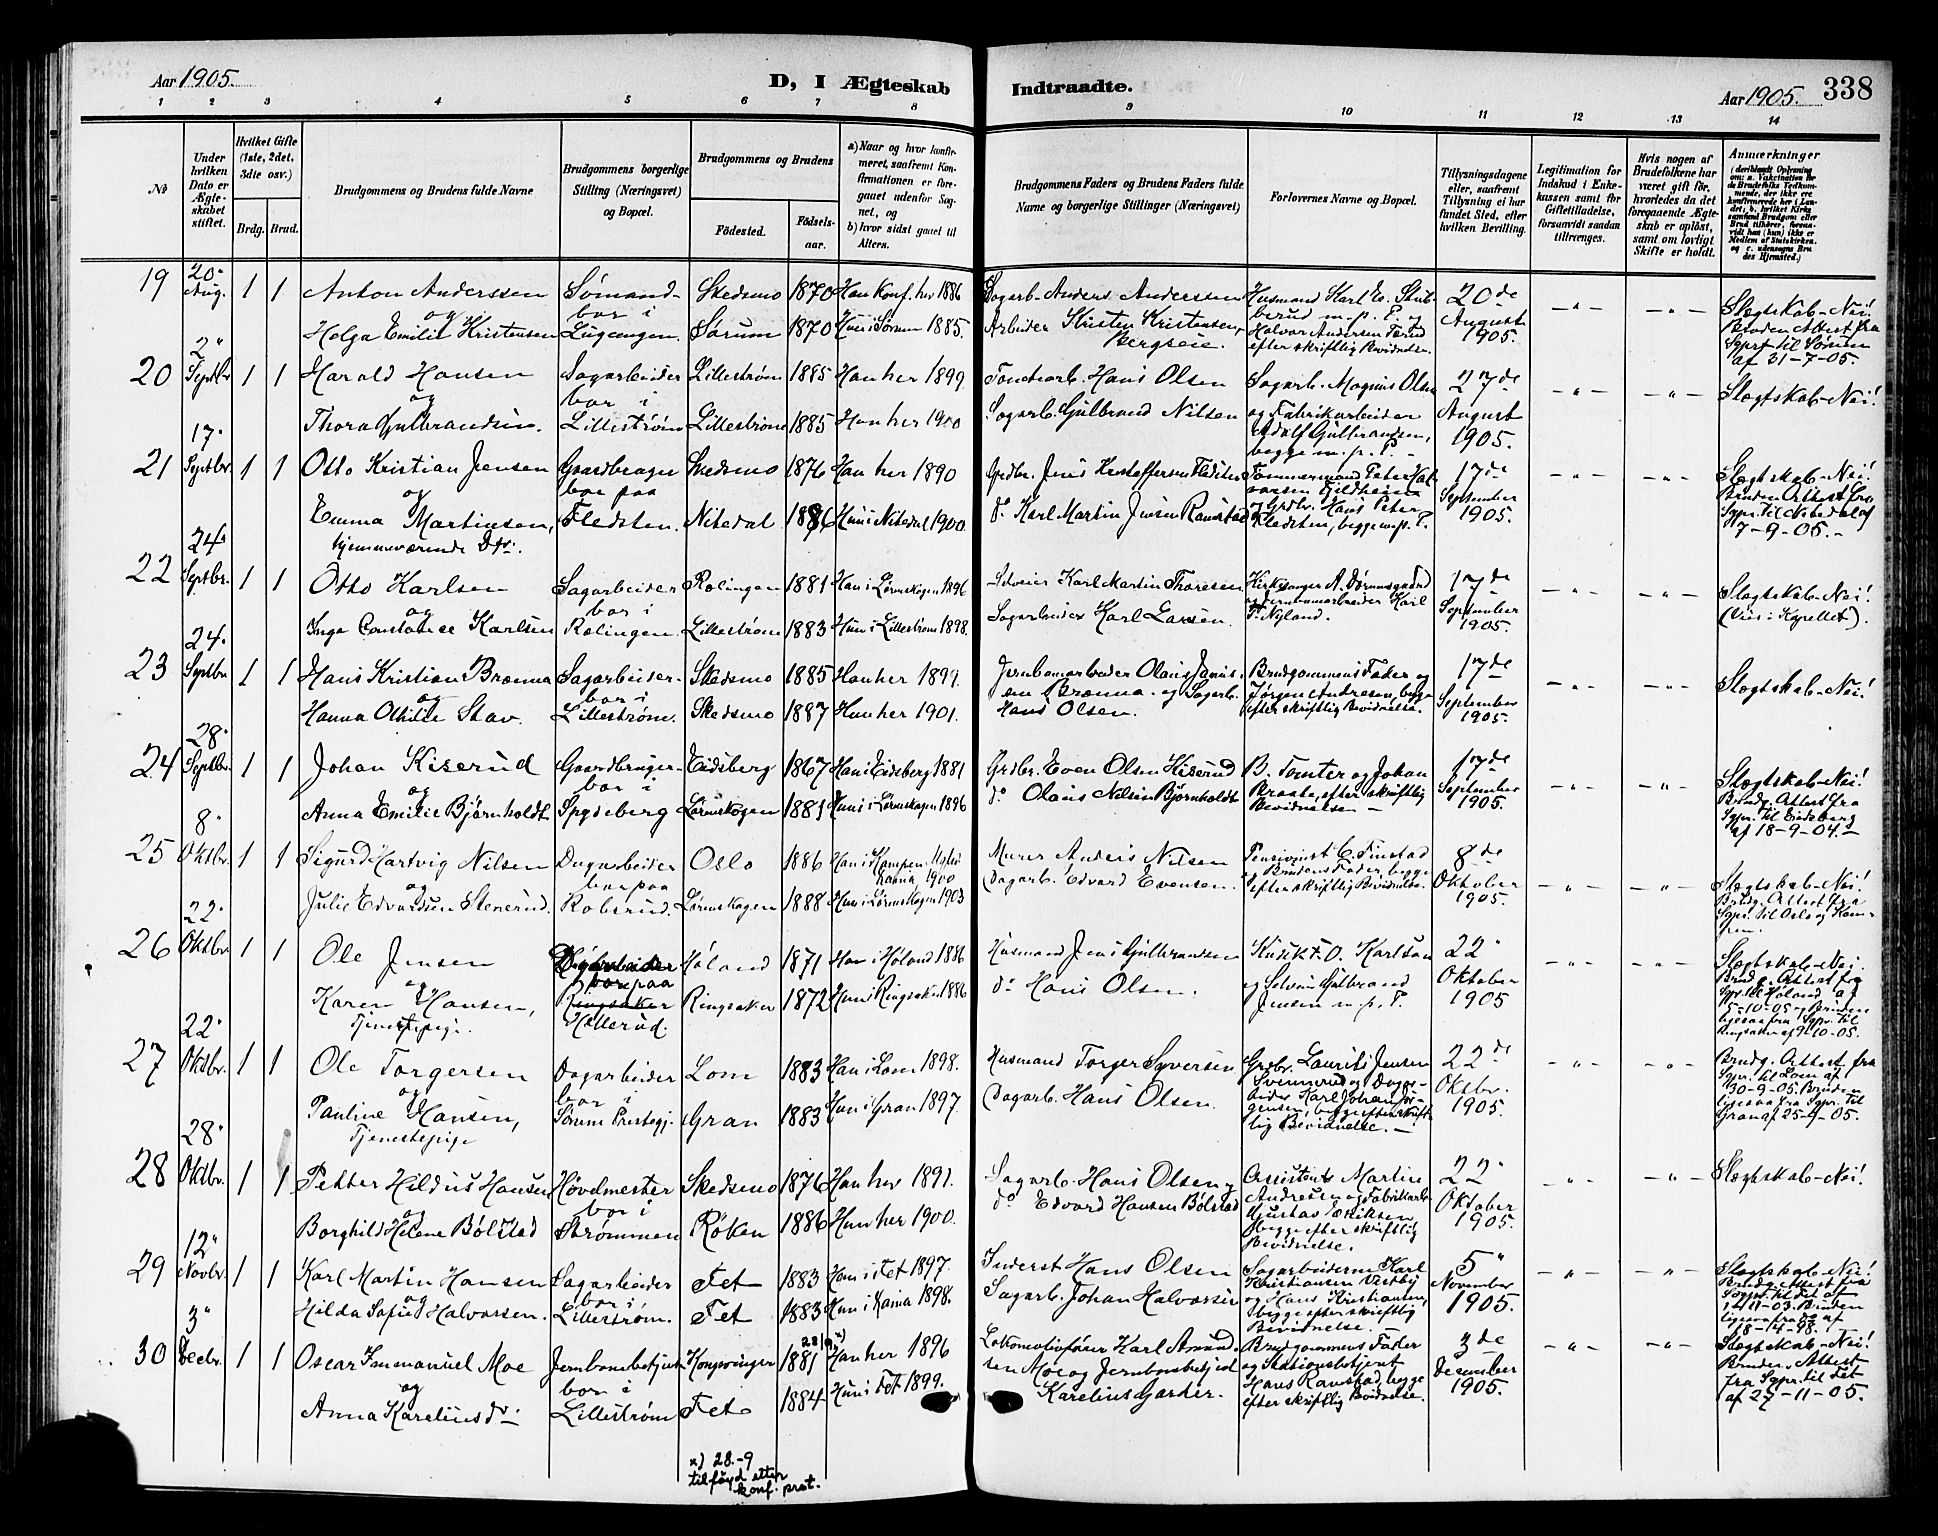 Aar 1905.
D, I Ægteskab Indtraadte.
Aar 1905. 338
1 2 3 4 5 6 7 8 9 10 11 12 13 14
No
Under hvilken Dato er Ægteskabet stiftet.
Hvilket Gifte (1ste, 2det, 3die osv.)
Brdg. Brud.
Brudgommens og Brudens fulde Navne
Brudgommens borgerlige Stilling (Næringsvei) og Bopæl.
Brudgommens og Brudens
Födested. Födselsaar.
a) Naar og hvor konfirmeret, saafremt Konfirmationen er foregaaet udenfor Sognet, og
b) hvor sidst gaaet til Alters.
Brudgommens Faders og Brudens Faders fulde Navne og borgerlige Stillinger (Næringsvei)
Forlovernes Navne og Bopæl.
Tillysningsdagene eller, saafremt Tillysning ei har fundet Sted, efter hvilken Bevilling.
Legitimation for Indskud i Enkekassen samt for Giftetilladelse, forsaavidt saadan tiltrænges.
Hvis nogen af Brudefolkene har været gift för, hvorledes da det foregaaende Ægteskab er oplöst, samt om lovligt Skifte er holdt.
Anmærkninger
19 20. Aug. 1 1 Anton Anderssen Sømand- Skedsmo 1870 Han konf. her 1886 Sagarb. Anders Anderssen Husmand Karl E. Stubberud m. p. P. og 20de August 1905. Slægtskab-Nei!
og bor i
Helga Emilie Kristensen Sørum 1870 Hun i Sørum 1885. Arbeider Kristen Kristensen, Bergseie. Halvor Andersen efter skriftlig Bevidnelse. Bruden Attest fra Sgpr. til Sørum af 31-7-05.
20 2. Septbr 1 1 Harald Hansen Sagarbeider Lillestrøm 1885 Han her 1899. Tomtearb. Hans Olsen Sagarb. Magnus Olsen 27de August 1905. Slægtskab-Nei!
og bor i
Thora Gulbrandsen. Lillestrøm Lillestrøm 1885 Hun her 1900 Sagarb. Gulbrand Nilsen og Fabrikarbeider Adolf Gulbrandsen, begge m. p. P.
21 17. Septbr. 1 1 Otto Kristian Jensen Gaardbruger Skedsmo 1876 Han her 1890 Grdbr. Jens Kristoffersen Fledsten Tømmermand Peter Halvorsen Fjeldheim 17de September 1905. Slægtskab-Nei!
og bor paa
Emma Martinsen, Fledsten. Nitedal 1886 Hun i Nitedal 1900 do Karl Martin Jensen Ramstad og Grdbr. Hans Peter Fledsten, begge m. p. P. Bruden Attest fra Sgpr. til Nitedal af 7-9-05.-
hjemmeværende Dtr.
22 24. Septbr. 1 1 Otto Karlsen Sagarbeider Rælingen 1881 Han i Lørenskogen 1896 Selveier Karl Martin Thoresen Kirkesanger A. Dørumsgaard 17de September 1905. Slægtskab-Nei!
og bor i
Inga Constance Karlsen Rælingen. Lillestrøm 1883 Hun i Lillestrøm 1898. Sagarbeider Karl Larsen. og Jernbanearbeider Karl Nyland. (Viet i Kapellet).
23 24. Septbr 1 1 Hans Kristian Brænna Sagarbeider- Skedsmo 1885 Han her 1899. Jernbanearbeider Olaus Jansen Brænna- og Sagarb. Brudgommens Fader og 17de September 1905. Slægtskab-Nei!
og bor i
Hanna Othilie Stav. Lillestrøm. Skedsmo 1887 Hun her 1901. Hans Olsen. Jørgen Andresen, begge efter skriftlig Bevidnelse.
24 28. Septbr. 1 1 Johan Kiserud Gaardbruger- Eidsberg 1867 Han i Eidsberg 1881 Grdbr. Even Olsen Kiserud B. Tomter og Johan 17de September 1905. Slægtskab-Nei!
og bor i
Anna Emilie Bjørnholdt Spydeberg Lørenskogen 1881 Hun i Lørenskogen 1896 do Olaus Nilsen Bjørnholdt Braate, efter skriftlig Bevidnelse- Brudg. Attest fra Sgpr. til Eidsberg af 18-9-04.-
25 8. Oktbr. 1 1 Sigurd Hartvig Nilsen Dagarbeider Oslo 1886 Han i Kampen 1900 Murer Anders Nilsen Pensionist C. Finstad 8de Oktober 1905. Slægtskab-Nei!
og bor paa
Julie Edvardsen Stenerud. Robsrud. Lørenskogen 1888 Hun i Lørenskogen 1903 Dagarb. Edvard Evensen. og Brudens Fader, begge efter skriftlig Bevidnelse. Brudg. Attest fra Sgpr. til Oslo og Kampen.
26 22. Oktbr. 1 1 Ole Jensen Høland 1871 Han i Høland 1886 Husmand Jens Gulbrandsen Kusk O. Karlsen 22. Oktober 1905 Slægtskab-Nei.
og bor paa
Karen Hansen, Ringsaker Ringsaker 1872 Hun i Ringsaker 1886 do Hans Olsen. og Gulbrand Jensen m. p. P. Brudg. Attest fra Sgpr. til Høland af 5-10-05-, Bruden ligesaa fra Sgpr. til Ringsaker af 9-10-05.
Tjenestepige. Hellerud.
27 22. Oktbr. 1 1 Ole Torgersen Dagarbeider Lom 1883 Han i Lom 1898. Husmand Torger Syversen Grdbr. Laurits Jensen 22de Oktbr. 1905. Brudg. Attest fra Sgpr. til Lom af 30-9-05. Bruden ligesaa fra Sgpr. til Gran af 25-9-05.
og bor i
Pauline Hansen, Sørum Prestegj. Gran 1883 Hun i Gran 1897. Dagarb. Hans Olsen. Svennerud og Dagarbeider Karl Johan Jørgensen, begge efter skriftlig Bevidnelse.-
Tjenestepige
28 28. Oktbr. 1 1 Petter Hildus Hansen Høvelmester Skedsmo 1876 Han her 1891. Sagarb. Hans Olsen og Assistent Martin 22. Oktober 1905. Slægtskab-Nei!
og bor i
Borghild Helene Bølstad Strømmen Røken 1886 Hun her 1900. do Edvard Hansen Bølstad Andresen og Fabrikarb. Gustav Eriksen begge efter skriftlig Bevidnelse.
29 12. Novbr. 1 1 Karl Martin Hansen Sagarbeider Fet 1883 Han i Fet 1897. Inderst Hans Olsen Sagarbeiderne Karl 5. November 1905. Slægtskab-Nei!
og bor i
Hilda Sofie Halvorsen. Lillestrøm. Fet 1883 Hun i 1898. Sagarb. Johan Halvorsen Kristiansen Vestby og Hans Kristiansen, begge efter skriftlig Bevidnelse. Brudg. Attest fra Sogpr. til Fet af 14-11-03. Bruden
30 3. Decbr. 1 1 Oscar Immanuel Moe Jernbanebetjent Kongsvinger 28/9 1881 x) Han her 1896 Lokomotivfører Karl Amundsen Moe og Jernbanebetjent Brudgommens Fader 3de December 1905. Slægtskab-Nei!
og bor i
Anna Kareliusdtr. Lillestrøm Fet 1884 Hun i Fet 1899. Karelius Garder. og Stationsbetjent Hans Ramstad, begge efter skriftlig Bevidnelse. Bruden Attest fra Sgpr. til Fet af 27-11-05.
x) 28.-9
tilføyd etter
konf. prot.